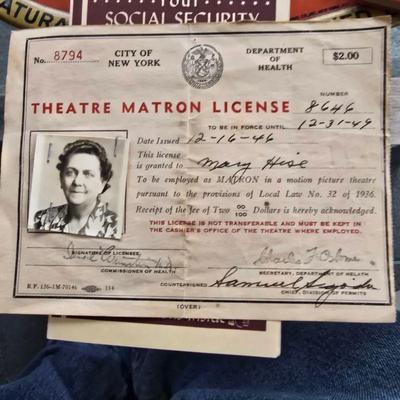 Your
SOCIAL SECURITY
No. 8794
CITY OF
NEW YORK
DEPARTMENT
OF
HEALTH
$2.00
THEATRE MATRON LICENSE
NUMBER
8646
TO BE IN FORCE UNTIL 12-31-49
Date Issued 12-16-46
This license
is granted to Mary Hise
To be employed as MATRON in a motion picture theatre
pursuant to the provisions of Local Law No. 32 of 1936.
Receipt of the fee of Two 00/100 Dollars is hereby acknowledged.
THIS LICENSE IS NOT TRANSFERABLE AND MUST BE KEPT
IN THE CASHIER'S OFFICE OF THE THEATRE WHERE EMPLOYED.
SIGNATURE OF LICENSEE
COMMISSIONER OF HEALTH
SECRETARY, DEPARTMENT OF HEALTH
COUNTERSIGNED Samuel
CHIEF, DIVISION OF PERMITS
114
(OVER)